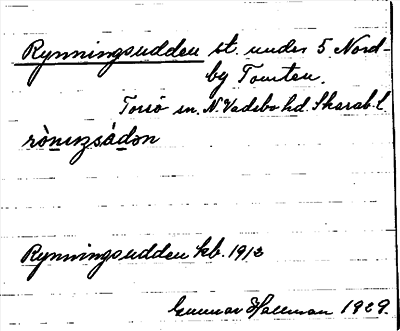 Rynningsudden st. under 5 Nord-
by Tomten.
Torsö sn. N. Vadsbo hd. Skarab. l.
rònıŋsádən
Rynningsudden kb. 1912
Gunnar Hallman 1929.